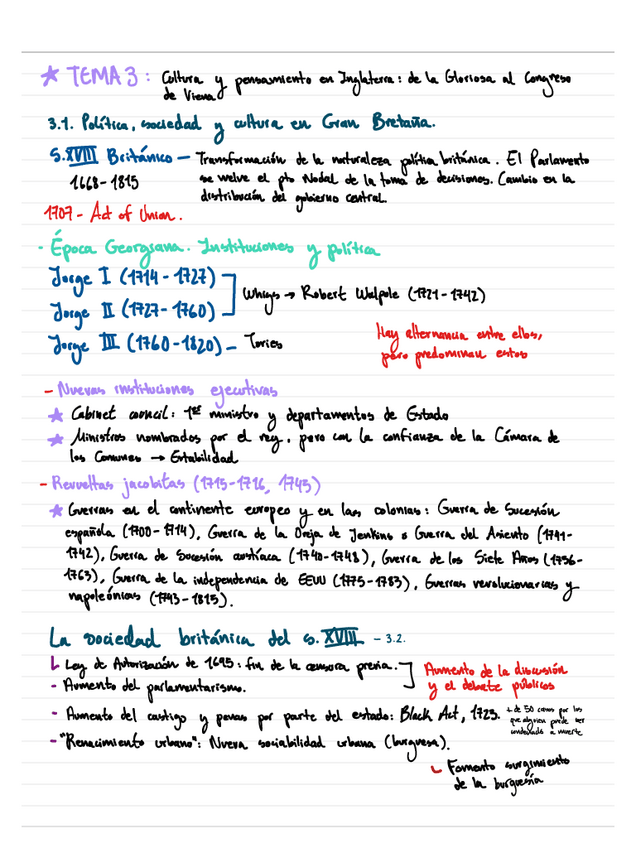 ★ TEMA 3: Cultura y pensamiento en Inglaterra: de la Gloriosa al Congreso
de Viena
3.1. Política, sociedad y cultura en Gran Bretaña.
S.XVIII Británico – Transformación de la naturaleza política británica. El Parlamento
1668-1815 se vuelve el pto Nodal de la toma de decisiones. Cambio en la
distribución del gobierno central.
1707 - Act of Union.
- Época Georgiana. Instituciones y política
Jorge I (1714-1727)
Whigs → Robert Walpole (1721-1742)
Jorge II (1727-1760)
Jorge III (1760-1820) – Tories
Hay alternancia entre ellos,
pero predominan estos
- Nuevas instituciones ejecutivas
★ Cabinet council: 1er ministro y departamentos de Estado
★ Ministros nombrados por el rey, pero con la confianza de la Cámara de
los Comunes → Estabilidad
- Revueltas jacobitas (1715-1716, 1745)
★ Guerras en el continente europeo y en las colonias: Guerra de Sucesión
española (1700-1714), Guerra de la Oreja de Jenkins o Guerra del Asiento (1741-
1742), Guerra de Sucesión austríaca (1740-1748), Guerra de los Siete Años (1756-
1763), Guerra de la independencia de EEUU (1775-1783), Guerras revolucionarias y
napoleónicas (1793-1815).
La sociedad británica del s. XVIII – 3.2.
Ley de Autorización de 1695: fin de la censura previa.
- Aumento del parlamentarismo.
Aumento de la discusión
y el debate públicos
- Aumento del castigo y penas por parte del estado: Black Act, 1723.
+ de 50 casos por los
que alguien puede ser
condenado a muerte
- "Renacimiento urbano": Nueva sociabilidad urbana (burguesa).
Fomento surgimiento
de la burguesía